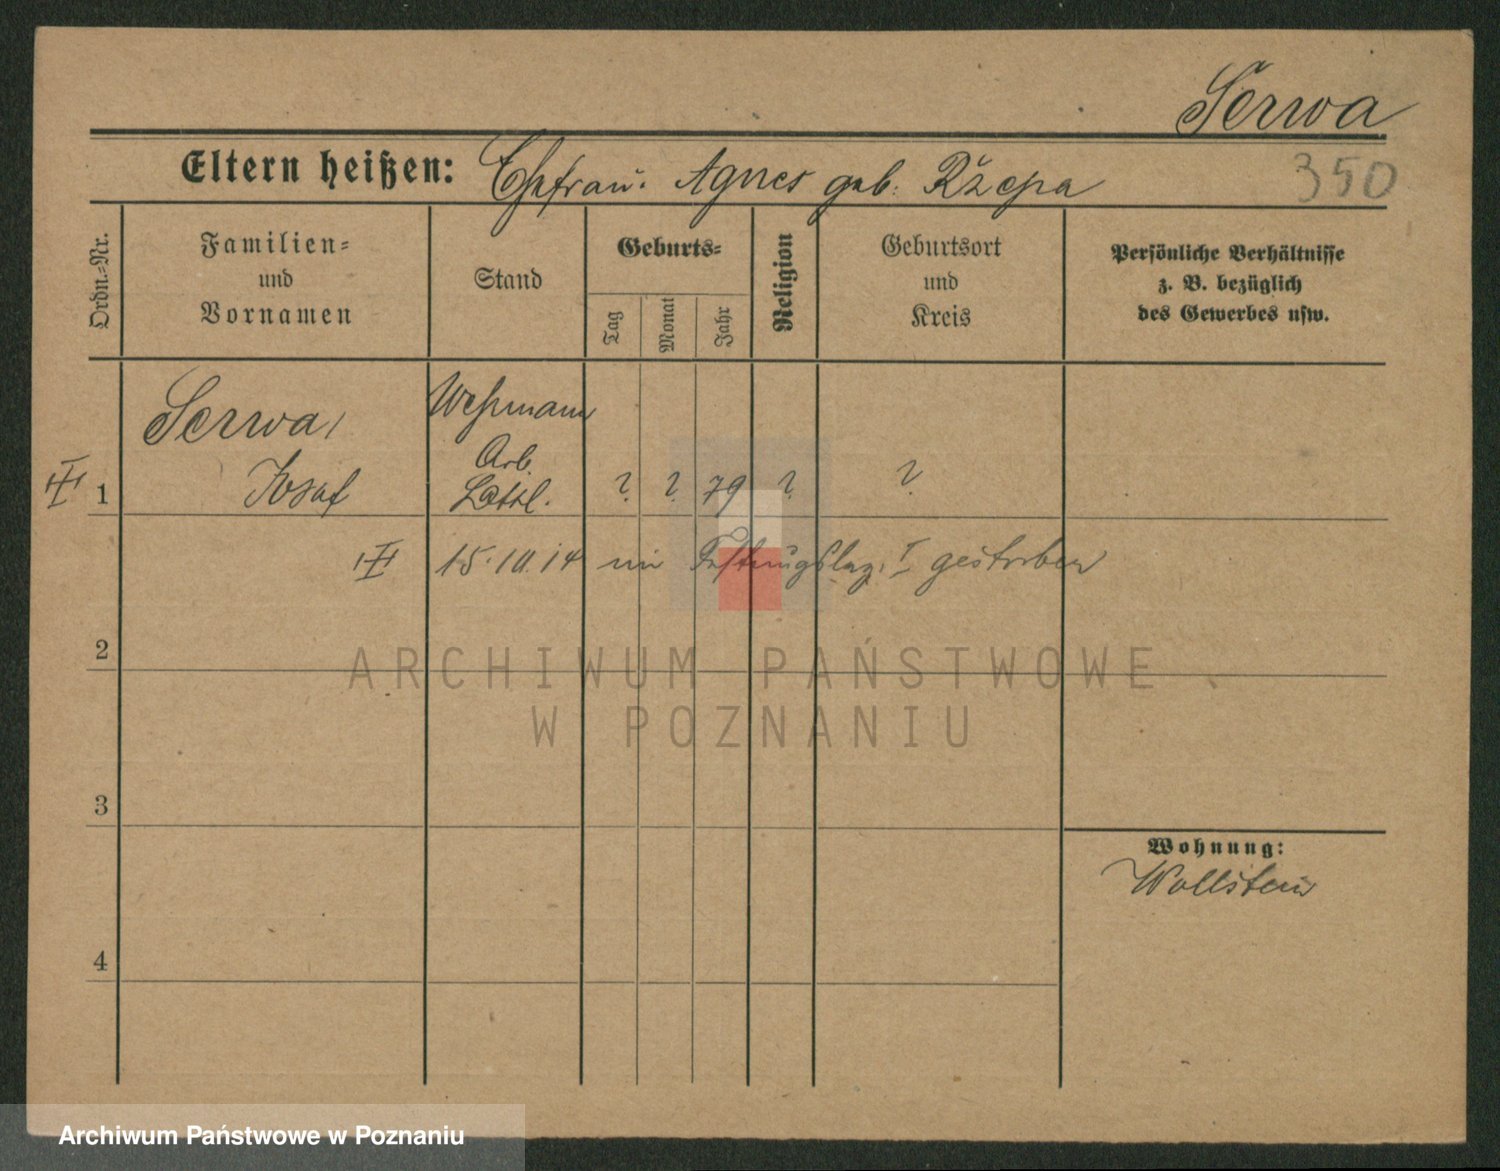 Serwa
Eltern heißen: Ehefrau: Agnes geb. Ržepa
350
Ordn.-Nr.
Familien-
und
Vornamen
Stand
Geburts-
Tag
Monat
Jahr
Religion
Geburtsort
und
Kreis
Persönliche Verhältnisse
z. B. bezüglich
des Gewerbes usw.
Serwa,
Josef
Wehrmann
Arb.
1 ? ? 79 ? ?
15.10.14 im Festungslaz. I gestorben
2
ARCHIWUM PAŃSTWOWE
W POZNANIU
3
Wohnung:
Wollstein
4
Archiwum Państwowe w Poznaniu